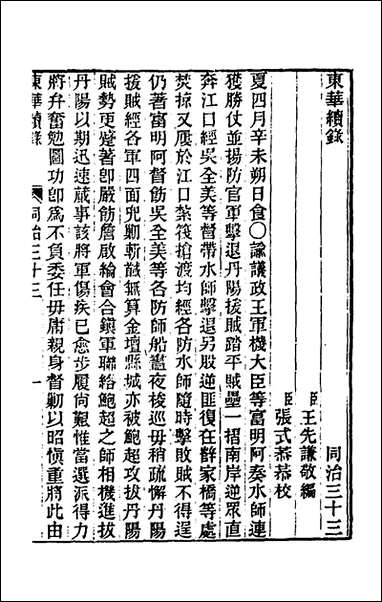 東華續錄
同治三十三
臣王先謙敬編
臣張式恭恭校
夏四月辛未朔日食〇諭議政王軍機大臣等富明阿奏水師連
獲勝仗並揚防官軍擊退丹陽援賊踏平賊壘一摺南岸逆眾直
奔江口經吳全美等督帶水師擊退另股逆匪復在薛家橋等處
焚掠又屢於江口紮筏搶渡均經各防水師隨時擊敗賊不得逞
仍著富明阿督飭吳全美等各防師船晝夜梭巡毋稍疏懈丹陽
援賊經各軍四面兜剿斬馘無算金壇縣城亦被鮑超攻拔丹陽
賊勢更蹙著卽嚴飭詹啟綸會合鎮軍聯絡鮑超之師相機進拔
丹陽以期迅速蕆事該將軍傷疾已愈步履尚艱惟當選派得力
將弁奮勉圖功卽爲不負委任毋庸親身督勦以昭愼重將此由
東華續錄
同治三十三
一